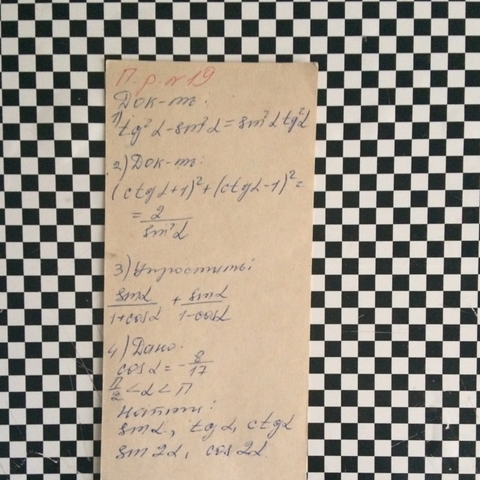 П.р. №19
Док-ть:
1) tg²α-sin²α=sin²α tg²α
2) Док-ть:
(ctgα+1)²+(ctgα-1)²=
= 2/sin²α
3) Упростить:
sinα/1+cosα + sinα/1-cosα
4) Дано:
cosα=-8/17
π/2<α<π
Найти:
sinα, tgα, ctgα
sin2α, cos2α